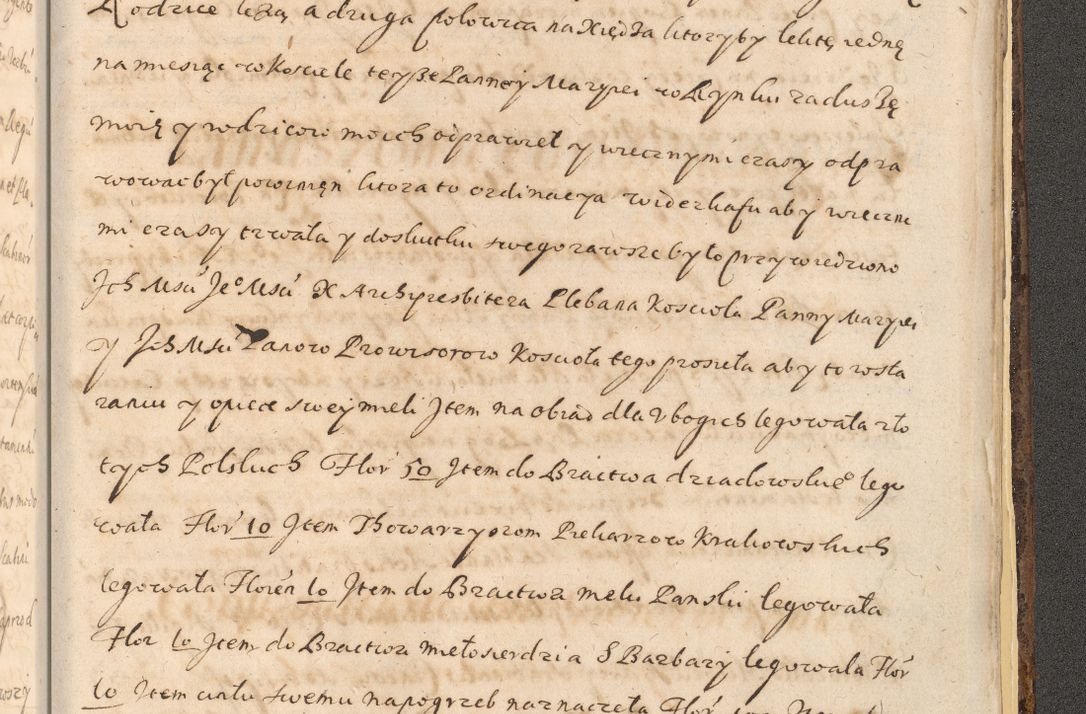 Rodzice leżą a druga połowica na Xiędza ktoryby lekcę iednę
na miesiąc w Kosciele teyże Panney Maryei w Rynku za duszę
moię y rodzicow moich odprawiał y wiecznymi czasy odpra
wowac był powinięn ktora to ordinacya widerkafu aby wieczne
mi czasy trwała y do skutku swego zawsze było przywiedziono
Ich Mśu Je° Mśu X Archypresbitera Plebana Koscioła Panny Maryei
y Ich Mśu Panow Prowisorow Koscioła tego prosiła aby to w sta
raniu y opiece swey mieli Item na obiad dla Vbogich legowała zło
tych Polskich Flor 50 Item do Bractwa dziadowskie° lego
wała Flor 10 Item Thowarzyszom Piekarzow Krakowskich
legowała Floren 10 Item do Bractwa męki Panskii legowała
Flor 10 Item do Bractwa miełosierdzia S Barbary legowała Flor
10 Item ciału swemu na pogrzeb naznaczeła Flor